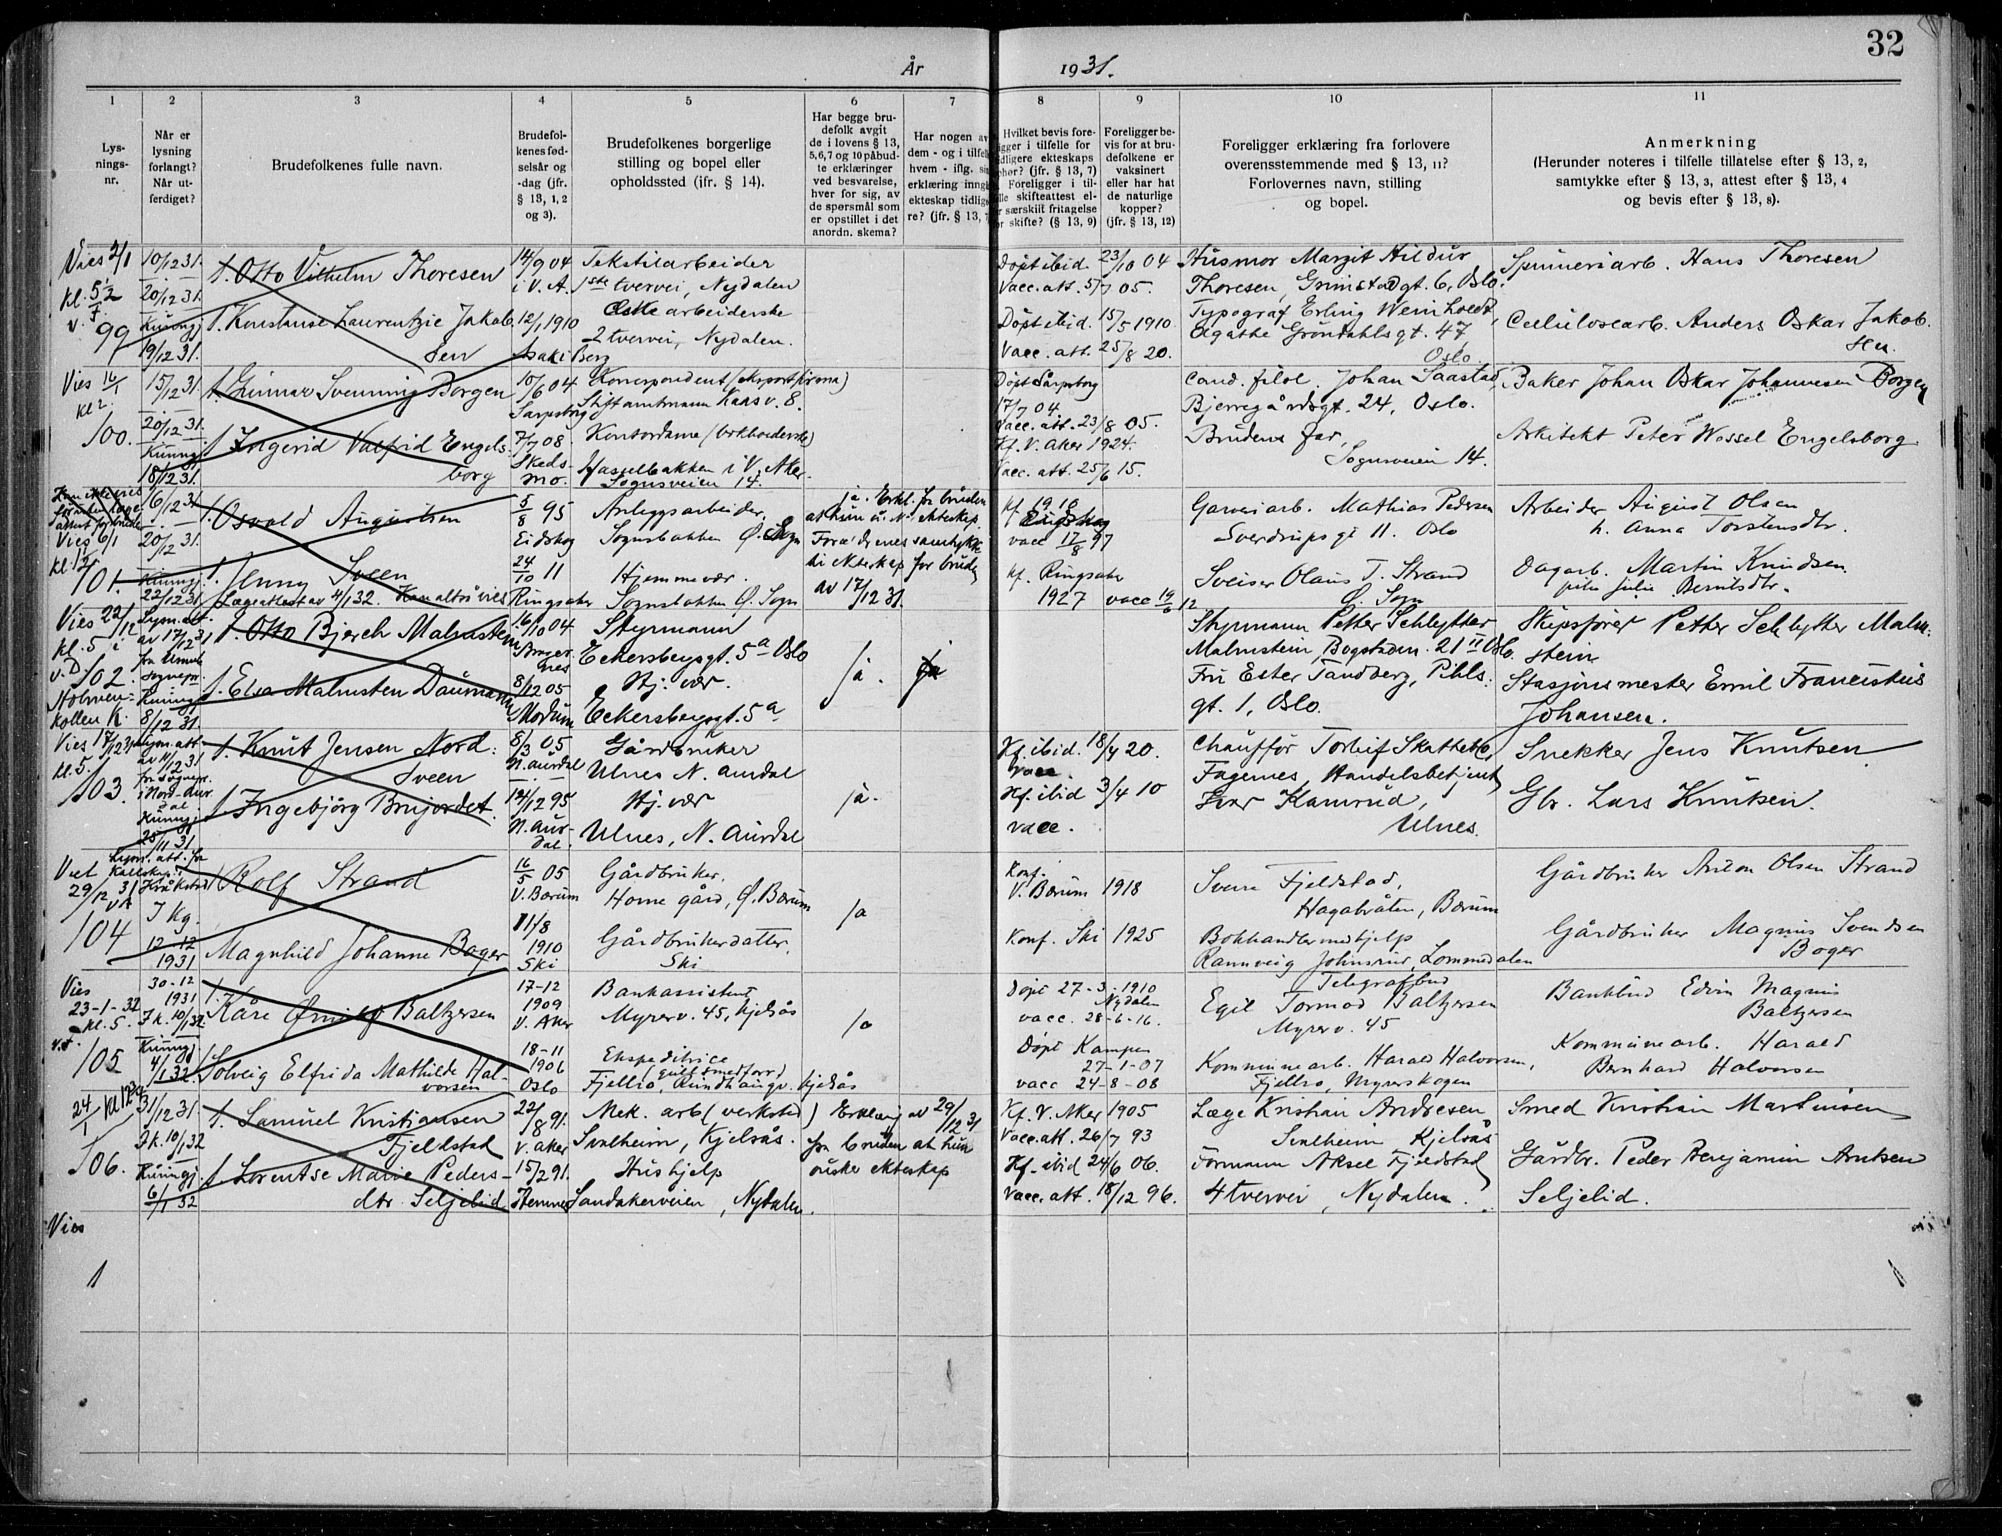 32
År 1931.
1 2 3 4 5 6 7 8 9 10 11
Lys-
nings-
nr.
Når er
lysning
forlangt?
Når ut-
ferdiget?
Brudefolkenes fulle navn.
Brudefol-
kenes fød-
selsår og
-dag (jfr.
§ 13, 1, 2
og 3).
Brudefolkenes borgerlige
stilling og bopel eller
opholdssted (jfr. § 14).
Har begge bru-
defolk avgit
de i lovens § 13,
5,6,7 og 10 påbud-
te erklæringer
ved besvarelse,
hver for sig, av
de spørsmål som
er opstillet i det
anordn. skema?
Har nogen av
dem - og i tilfelle
hvem - iflg. sin
erklæring inngå
ekteskap tidlige-
re? (jfr. § 13, 7
Hvilket bevis fore-
ligger i tilfelle for
tidligere ekteskaps
ophør? (jfr. § 13, 7)
Foreligger i til-
felle skifteattest el-
ler særskilt fritagelse
for skifte? (§ 13, 9)
Foreligger be-
vis for at bru-
defolkene er
vaksinert
eller har hat
de naturlige
kopper?
(jfr. § 13, 12)
Foreligger erklæring fra forlovere
overensstemmende med § 13, 11?
Forlovernes navn, stilling
og bopel.
Anmerkning
(Herunder noteres i tilfelle tillatelse efter § 13, 2,
samtykke efter § 13, 3, attest efter § 13, 4
og bevis efter § 13, 8).
Vies 2/1
kl. 5½
99
10/12 31.
20/12 31.
Kunngj.
19/12 31.
Otto Vilhelm Thoresen
Konstanse Laurentzie Jakob-
sen
14/9 04
i V. A.
12/1 1910
Tekstilarbeider
1ste tvervei, Nydalen
arbeiderske
2 tvervei, Nydalen.
Døpt ibid. 23/10 04
Vacc. att. 5/7 05.
Døpt ibid. 15/5 1910.
Vacc. att. 25/8 20.
Husmor Margit Hildur
Thoresen, Grimstadgt. 6, Oslo.
Typograf Erling Weinholdt,
Agathe Grøndahlsgt. 47
Oslo.
Spinneriarb. Hans Thoresen
Cellulosearb. Anders Oskar Jakob-
sen.
Vies 16/1
kl 2.
100.
15/12 31.
20/12 31.
Kunng.
18/12 31.
Gunnar Svenning Borgen
Ingerid Valfrid Engels-
borg
10/6 04
Sarpsborg
7/7 08.
Skeds-
mo.
Korrespondent (eksportfirma)
Stiftamtmann Kaas v. 8.
Kontordame (bokholderske)
Hasselbakken i V. Aker.
Sognsveien 14.
Døpt Sarpsborg
17/7 04
Vacc. att. 23/8 05.
Kf. V. Aker 1924.
Vacc. att. 25/6 15.
cand. filol. Johan Saastad,
Bjerregårdsgt. 24, Oslo.
Brudens far,
Sognsveien 14.
Baker Johan Oskar Johannesen Borgen
Arkitekt Peter Wessel Engelsborg
Vies 6/1
kl. 12
101.
16/12 31
20/12 31.
Kunngj.
22/12 31.
Osvald Augustsen
Jenny Sveen
Lægeattest av 4/1 32. Kan altså vies
5/8 95
Eidskog
24/10 11
Ringsaker
Anleggsarbeider,
Sognsbakken Ø. Sogn
Hjemmevær.
Sognsbakken Ø. Sogn
ja. Erkl. fr bruden
at hun ø. N. ekteskap.
Foreldrenes samtykke
til ekteskap for bruden
av 17/12 31.
kf. 1910
Eidskog
vacc 17/8 97
kf. Ringsaker
1927 vacc 19/6 12
Garveriarb. Mathias Pedersen
Sverdrupsgt 11. Oslo
Sveiser Olaus T. Strand
Ø. Sogn
Arbeider August Olsen
h. Anna Torstensdtr.
Dagarb. Martin Knudsen.
Julie Berntsdtr.
Vies 22/12
kl. 5 i
v. D. 102.
Holmen-
kollen K.
Lysn. att.
av 17/12 31
Kunngj
8/12 31.
Otto Bjerch Malmstein
Elsa Malmsten Daumann
16/10 04
Brager-
nes
8/12 05
Modum
Styrmann
Eckersbergsgt. 5a Oslo
Hj. vær.
Eckersbergsgt. 5a
ja.
Styrmann Petter Schlytter
Malmstein, Bogstadvn. 21 II Oslo.
Fru Ester Tandberg, Pihls-
gt. 1, Oslo.
Skipsfører Petter Schlytter Malm-
stein
Stasjonsmester Emil Franciskus
Johansen.
Vies 17/12 31
kl. 5.
103.
Lysn. att.
av 11/12 31
fr. sognepr.
i Nord-Aur-
dal.
Kunngj.
25/11 31
Knut Jensen Nord-
sveen
Ingebjørg Brujordet.
8/3 05
N. Aurdal
14/12 95
N. Aur-
dal.
Gårdbruker
Ulnes N. Aurdal
Hj. vær
Ulnes, N. Aurdal
ja.
Kf. ibid. 18/4 20.
vacc.
Kf. ibid 3/4 10
vacc.
Chauffør Torleif Skattebo,
Fagernes, Handelsbetjent
Iver Kamrud,
Ulnes.
Snekker Jens Knutsen
Gbr. Lars Knutsen.
Viet
29/12 31
104
Lysn. att. fra
Kråkstad
J Kg.
12-12
1931
Rolf Strand
Magnhild Johanne Bøger
16/5 05
V. Bærum
11/8
1910
Ski
Gårdbruker,
Horne gård, Ø. Bærum
Gårdbrukerdatter,
Ski
ja
Konf.
V. Bærum 1918
Konf. Ski 1925
Sverre Fjeldstad,
Hagabråten, Bærum
Bokhandlermedhjelp
Rannveig Johnsrud, Lommedalen
Gårdbruker Anton Olsen Strand
Gårdbruker Magnus Svendsen
Bøger
Vies
23-1-32
kl. 5.
105
30-12
1931
J k. 10/1 32.
Kunngj.
4/1 32.
Kåre Baltzersen
Solveig Elfrida Mathilde Hal-
vorsen
17-12
1909
V. Aker
18-11
1906
Oslo
Bankassistent
Myrerv. 45, Kjelsås
Ekspeditrice
(gullsmedforr.)
Fjellro, Rundhaugv. Kjelsås
ja
Døpt 27-3-1910
Nydalen
vacc. 28-6-16.
Døpt Kampen
27-1-07
vacc 24-8-08
Telegrafbud
Egil Tormod Baltzersen
Myrerv. 45
Kommunearb. Harald Halvorsen,
Fjellro, Myrerskogen
Bankbud Edvin Magnus
Baltzersen
Kommunearb. Harald
Bernhard Halvorsen
24/1 kl 12
106.
31/12 31.
J k. 10/1 32
Kunngj.
6/1 32
Samuel Kristiansen
Fjeldstad
Lorentse Marie Peders-
dtr. Seljelid
22/8 91.
V. Aker
15/2 91.
Stemnes
Mek. arb (verksted)
Solheim, Kjelsås.
Hushjelp
Sandakerveien, Nydalen.
Erklæring av 29/12 31
fra bruden at hun
ønsker ekteskap
Kf. V. Aker 1905
Vacc. att. 26/7 93
Kf. ibid 24/6 06.
Vacc. att. 18/12 96.
Læge Kristian Andresen
Solheim Kjelsås
Formann Aksel Fjeldstad
4 tvervei, Nydalen.
Smed Kristian Martinsen
Gårdbr. Peder Benjamin Arntsen
Seljelid.
Vies
1